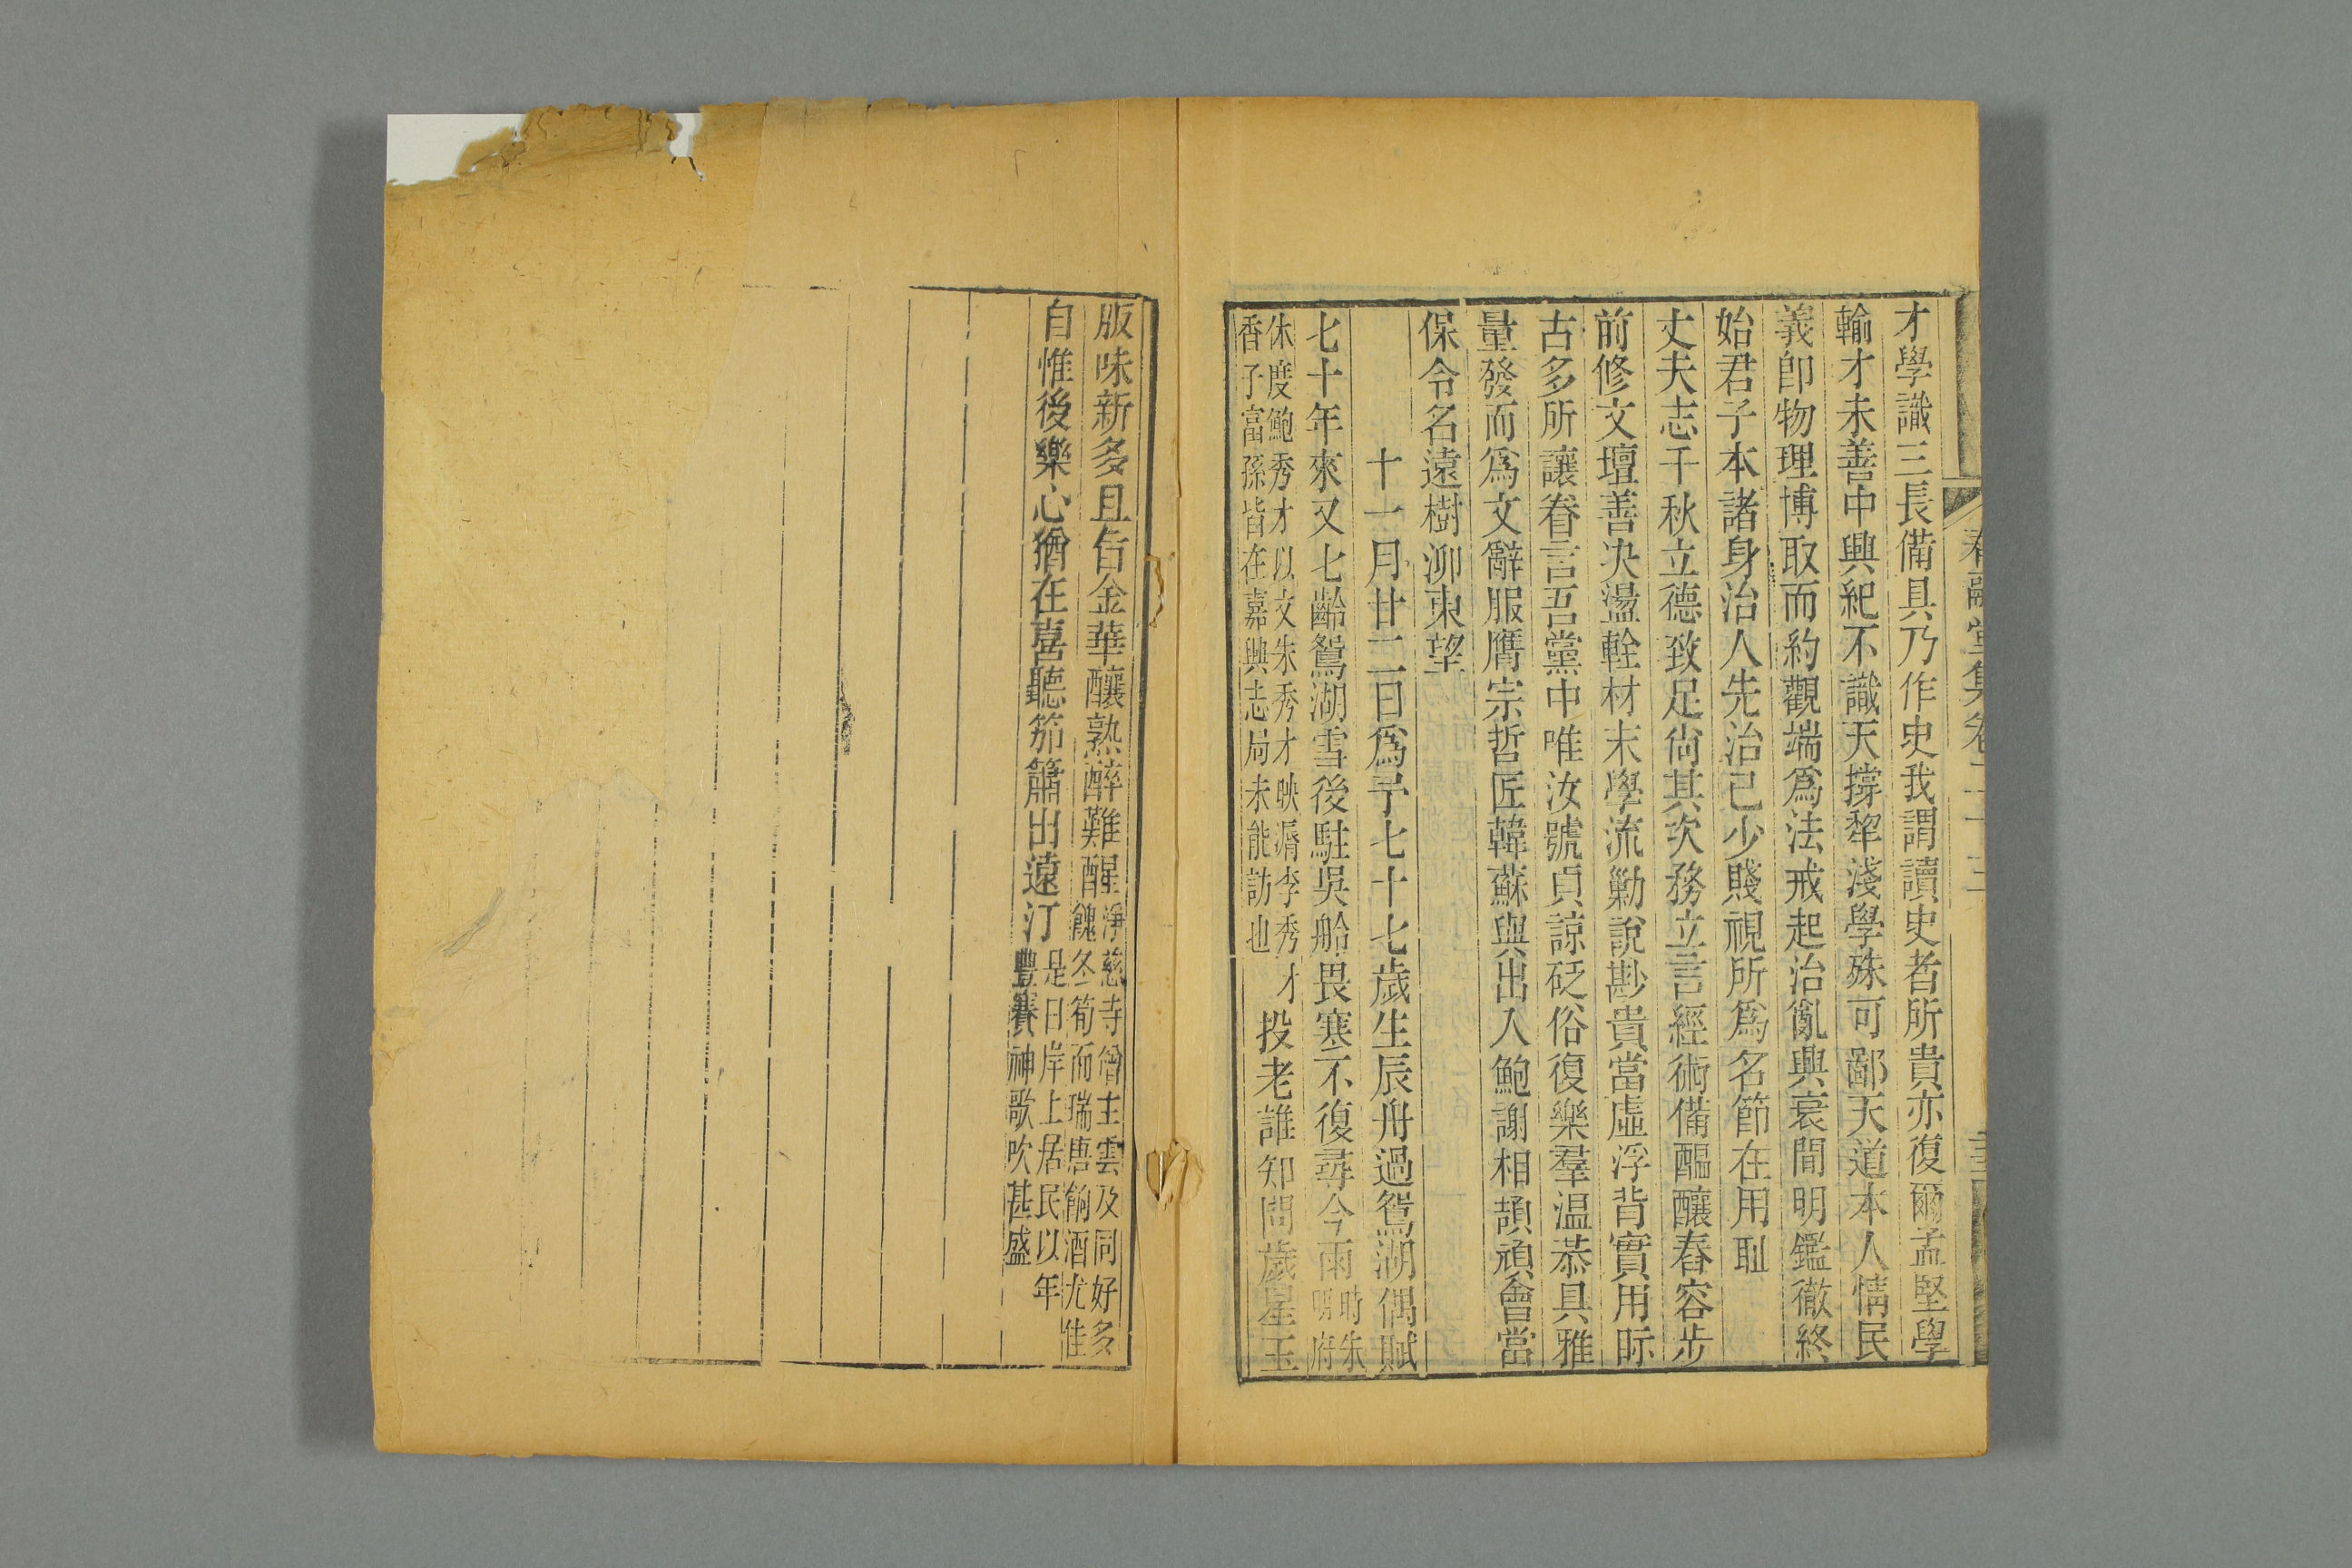 春融堂集卷二十三
才學識三長備具乃作史我謂讀史者所貴亦復爾孟堅學
輸才未善中興紀不識天撐犂淺學殊可鄙天道本人情民
義卽物理博取而約觀端爲法戒起治亂興衰間明鑑徹終
始君子本諸身治人先治己少賤視所爲名節在用恥
丈夫志千秋立德致足尚其次務立言經術備醞釀春容步
前修文壇善决盪輇材末學流勦說尠貴當虛浮背實用眎
古多所讓眷言吾黨中唯汝號貞諒砭俗復樂羣温恭具雅
量發而爲文辭服膺宗哲匠韓蘇與出入鮑謝相頡頏會當
保令名遠樹泖東望
十一月廿二日爲予七十七歲生辰舟過鴛湖偶賦
七十年來又七齡鴛湖雪後駐吳船畏寒不復尋今雨時朱明府
休度鮑秀才以文朱秀才映漘李秀才
香子富孫皆在嘉興志局未能訪也投老誰知問歲星玉
版味新多且旨金華釀熟醉難醒淨慈寺僧主雲及同好多
餽冬筍而瑞唐餉酒尤佳
自惟後樂心猶在喜聽笳簫出遠汀是日岸上居民以年
豐賽神歌吹甚盛